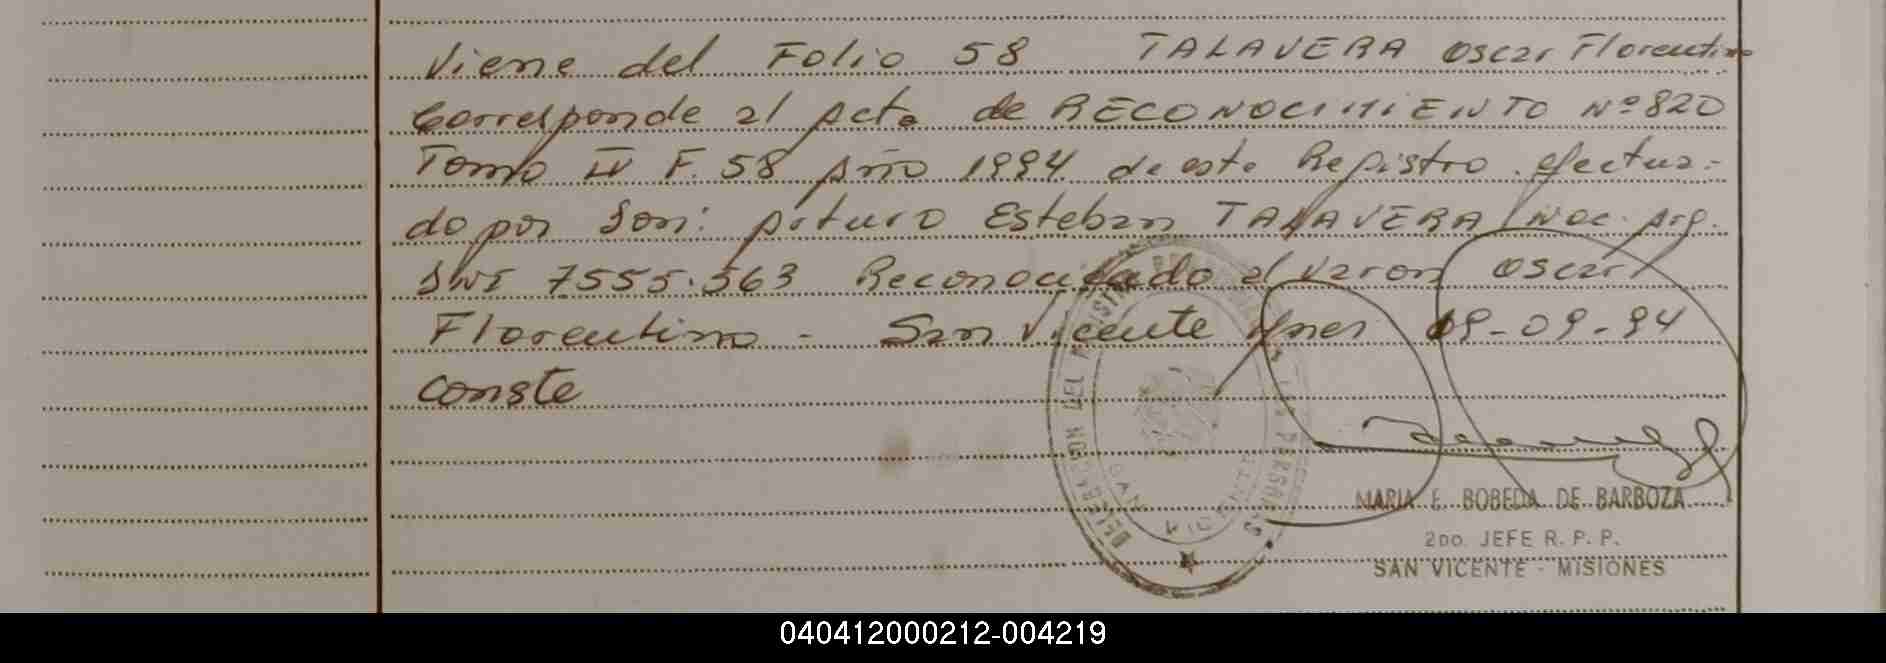 Viene del Folio 58 TALAVERA Oscar Florentino
Corresponde al Acta de RECONOCIMIENTO Nº 820
Tomo IV F. 58 Año 1994 de este Registro efectua-
do por Don: Arturo Esteban TALAVERA Nac. Arg.
DNI 7555.563 Reconociendo al varon Oscar
Florentino - San Vicente Mnes 09-09-94
Conste
DELEGACION DEL REGISTRO PROVINCIAL DE LAS PERSONAS
SAN VICENTE
MARIA E. BOBEDA DE BARBOZA
2DO. JEFE R. P. P.
SAN VICENTE - MISIONES
040412000212-004219